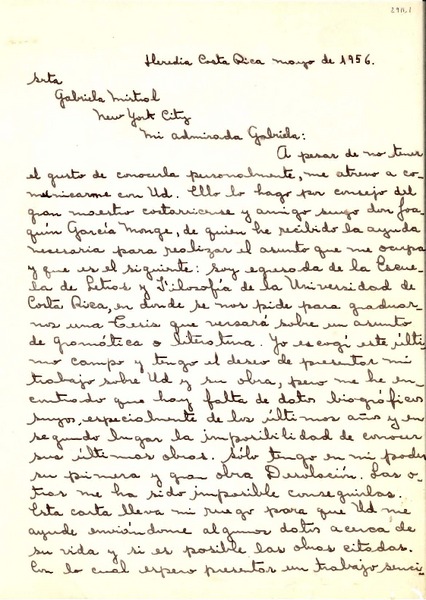 Heredia Costa Rica mayo de 1956.
Srta
Gabriela Mistral
New York City
Mi admirada Gabriela:
A pesar de no tener
el gusto de conocerla personalmente, me atrevo a co-
municarme con Ud. Ello lo hago por consejo del
gran maestro costarricense y amigo suyo don Joa-
quín García Monge, de quien he recibido la ayuda
necesaria para realizar el asunto que me ocupa
y que es el siguiente: soy egresada de la Escue-
la de Letras y Filosofía de la Universidad de
Costa Rica, en donde se nos pide para graduar-
nos una Tesis que versará sobre un asunto
de gramática o literatura. Yo escogí este últi-
mo campo y tengo el deseo de presentar mi
trabajo sobre Ud y su obra, pero me he en-
contrado que hay falta de datos biográficos
suyos, especialmente de los últimos años y en
segundo lugar la imposibilidad de conocer
sus últimas obras. Sólo tengo en mi poder
su primera y gran obra Desolación. Las o-
tras me ha sido imposible conseguirlas.
Esta carta lleva mi ruego para que Ud me
ayude enviándome algunos datos acerca de
su vida y si es posible las obras citadas.
Con lo cual espero presentar un trabajo senci-